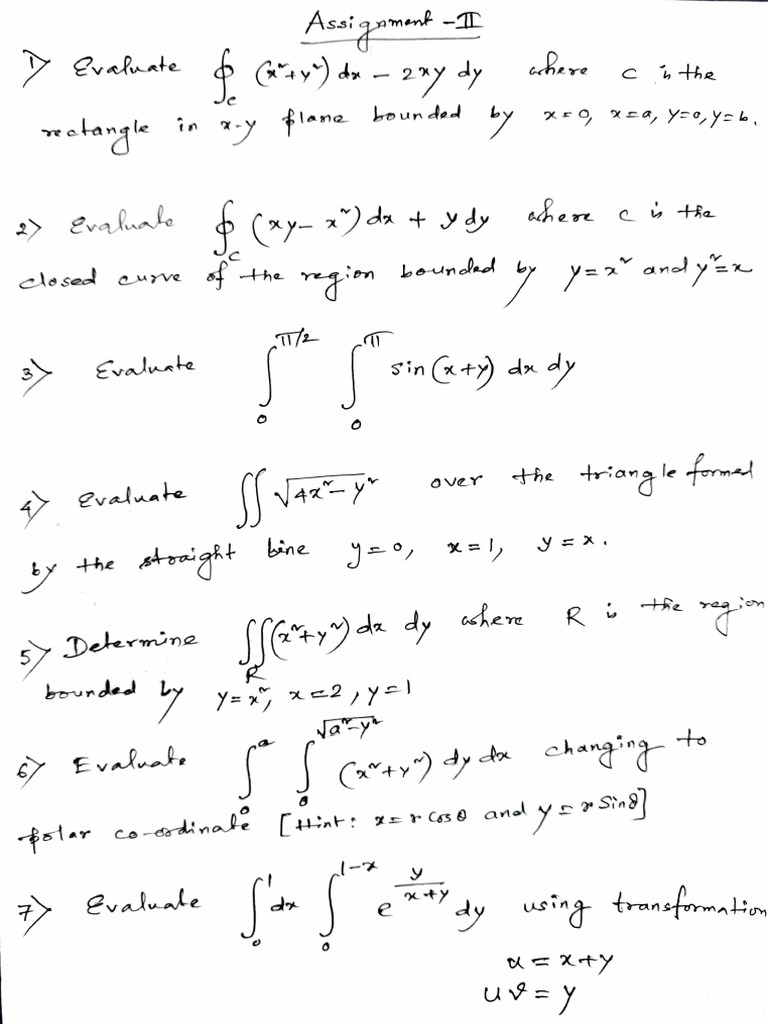 Assignment - II
1) Evaluate ∮_C (x²+y²) dx - 2xy dy where C is the
rectangle in x-y plane bounded by x=0, x=a, y=0, y=b.
2) Evaluate ∮_C (xy - x²) dx + y dy where C is the
closed curve of the region bounded by y=x² and y²=x
3) Evaluate ∫_0^{π/2} ∫_0^π sin(x+y) dx dy
4) Evaluate ∬ √(4x²-y²) over the triangle formed
by the straight line y=0, x=1, y=x.
5) Determine ∬_R (x²+y²) dx dy where R is the region
bounded by y=x², x=2, y=1
6) Evaluate ∫_0^a ∫_0^{√(a²-y²)} (x²+y²) dy dx changing to
polar co-ordinate [Hint: x=r cosθ and y=r sinθ]
7) Evaluate ∫_0^1 dx ∫_0^{1-x} e^{y/(x+y)} dy using transformation
u=x+y
uv=y